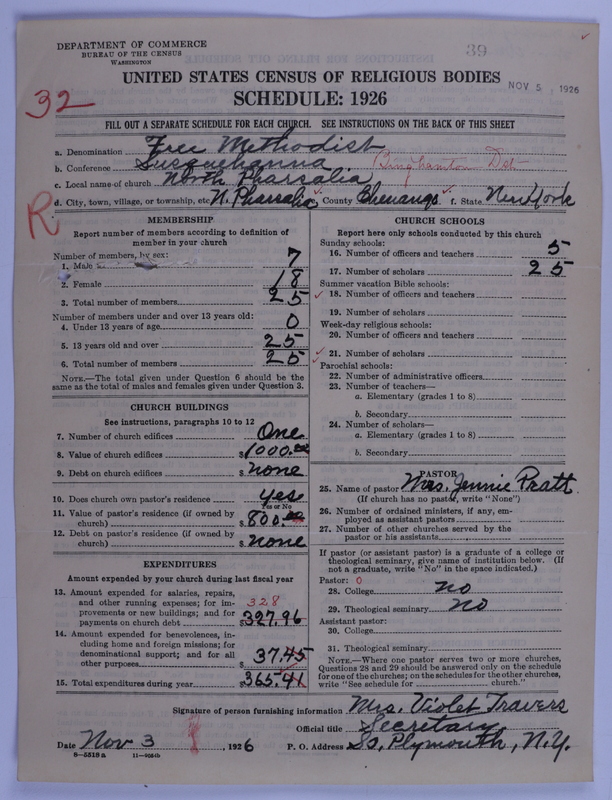 DEPARTMENT OF COMMERCE
BUREAU OF THE CENSUS
WASHINGTON
39
UNITED STATES CENSUS OF RELIGIOUS BODIES
NOV 5, 1926
SCHEDULE: 1926
32
FILL OUT A SEPARATE SCHEDULE FOR EACH CHURCH. SEE INSTRUCTIONS ON THE BACK OF THIS SHEET
a. Denomination Free Methodist
b. Conference Susquehanna Binghamton Dst
c. Local name of church North Pharsalia
d. City, town, village, or township, etc N. Pharsalia County Chenango f. State New York
R
MEMBERSHIP
Report number of members according to definition of
member in your church
Number of members, by sex:
1. Male 7
2. Female 18
3. Total number of members 25
Number of members under and over 13 years old:
4. Under 13 years of age 0
5. 13 years old and over 25
6. Total number of members 25
NOTE.—The total given under Question 6 should be the
same as the total of males and females given under Question 3.
CHURCH BUILDINGS
See instructions, paragraphs 10 to 12
7. Number of church edifices One
8. Value of church edifices $1000.00
9. Debt on church edifices $none
10. Does church own pastor's residence yes
Yes or No
11. Value of pastor's residence (if owned by
church) $800.00
12. Debt on pastor's residence (if owned by
church) $none
EXPENDITURES
Amount expended by your church during last fiscal year
13. Amount expended for salaries, repairs,
and other running expenses; for im- 328
provements or new buildings; and for
payments on church debt $327.96
14. Amount expended for benevolences, in-
cluding home and foreign missions; for
denominational support; and for all
other purposes $37.45
15. Total expenditures during year $365.41
CHURCH SCHOOLS
Report here only schools conducted by this church
Sunday schools:
16. Number of officers and teachers 5
17. Number of scholars 25
Summer vacation Bible schools:
18. Number of officers and teachers
19. Number of scholars
Week-day religious schools:
20. Number of officers and teachers
21. Number of scholars
Parochial schools:
22. Number of administrative officers
23. Number of teachers—
a. Elementary (grades 1 to 8)
b. Secondary
24. Number of scholars—
a. Elementary (grades 1 to 8)
b. Secondary
PASTOR
25. Name of pastor Mrs. Jennie Pratt
(If church has no pastor, write "None")
26. Number of ordained ministers, if any, em-
ployed as assistant pastors
27. Number of other churches served by the
pastor or his assistants
If pastor (or assistant pastor) is a graduate of a college or
theological seminary, give name of institution below. (If
not a graduate, write "No" in the space indicated.)
Pastor: 0
28. College no
29. Theological seminary no
Assistant pastor:
30. College
31. Theological seminary
NOTE.—Where one pastor serves two or more churches,
Questions 28 and 29 should be answered only on the schedule
for one of the churches; on the schedules for the other churches,
write "See schedule for church."
Signature of person furnishing information Mrs. Violet Travers
Official title Secretary
Date Nov 3, 1926 P. O. Address So. Plymouth, N.Y.
8—5519 a